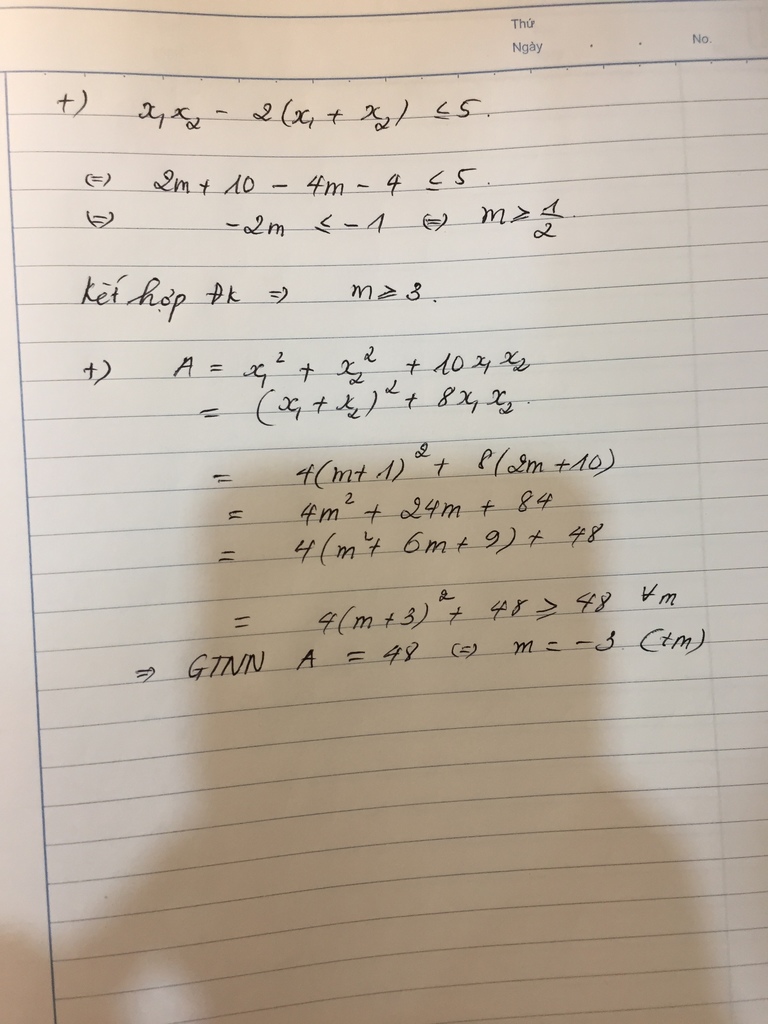 Thứ
Ngày . . No.
+) x₁x₂ - 2(x₁ + x₂) ≤ 5.
(=) 2m + 10 - 4m - 4 ≤ 5.
(=) -2m ≤ -1 (=) m ≥ 1/2.
Kết hợp Đk => m ≥ 3.
+) A = x₁² + x₂² + 10x₁x₂
= (x₁ + x₂)² + 8x₁x₂.
= 4(m+1)² + 8(2m+10)
= 4m² + 24m + 84
= 4(m² + 6m + 9) + 48
= 4(m+3)² + 48 ≥ 48 ∀m
=> GTNN A = 48 (=) m = -3 (tm)